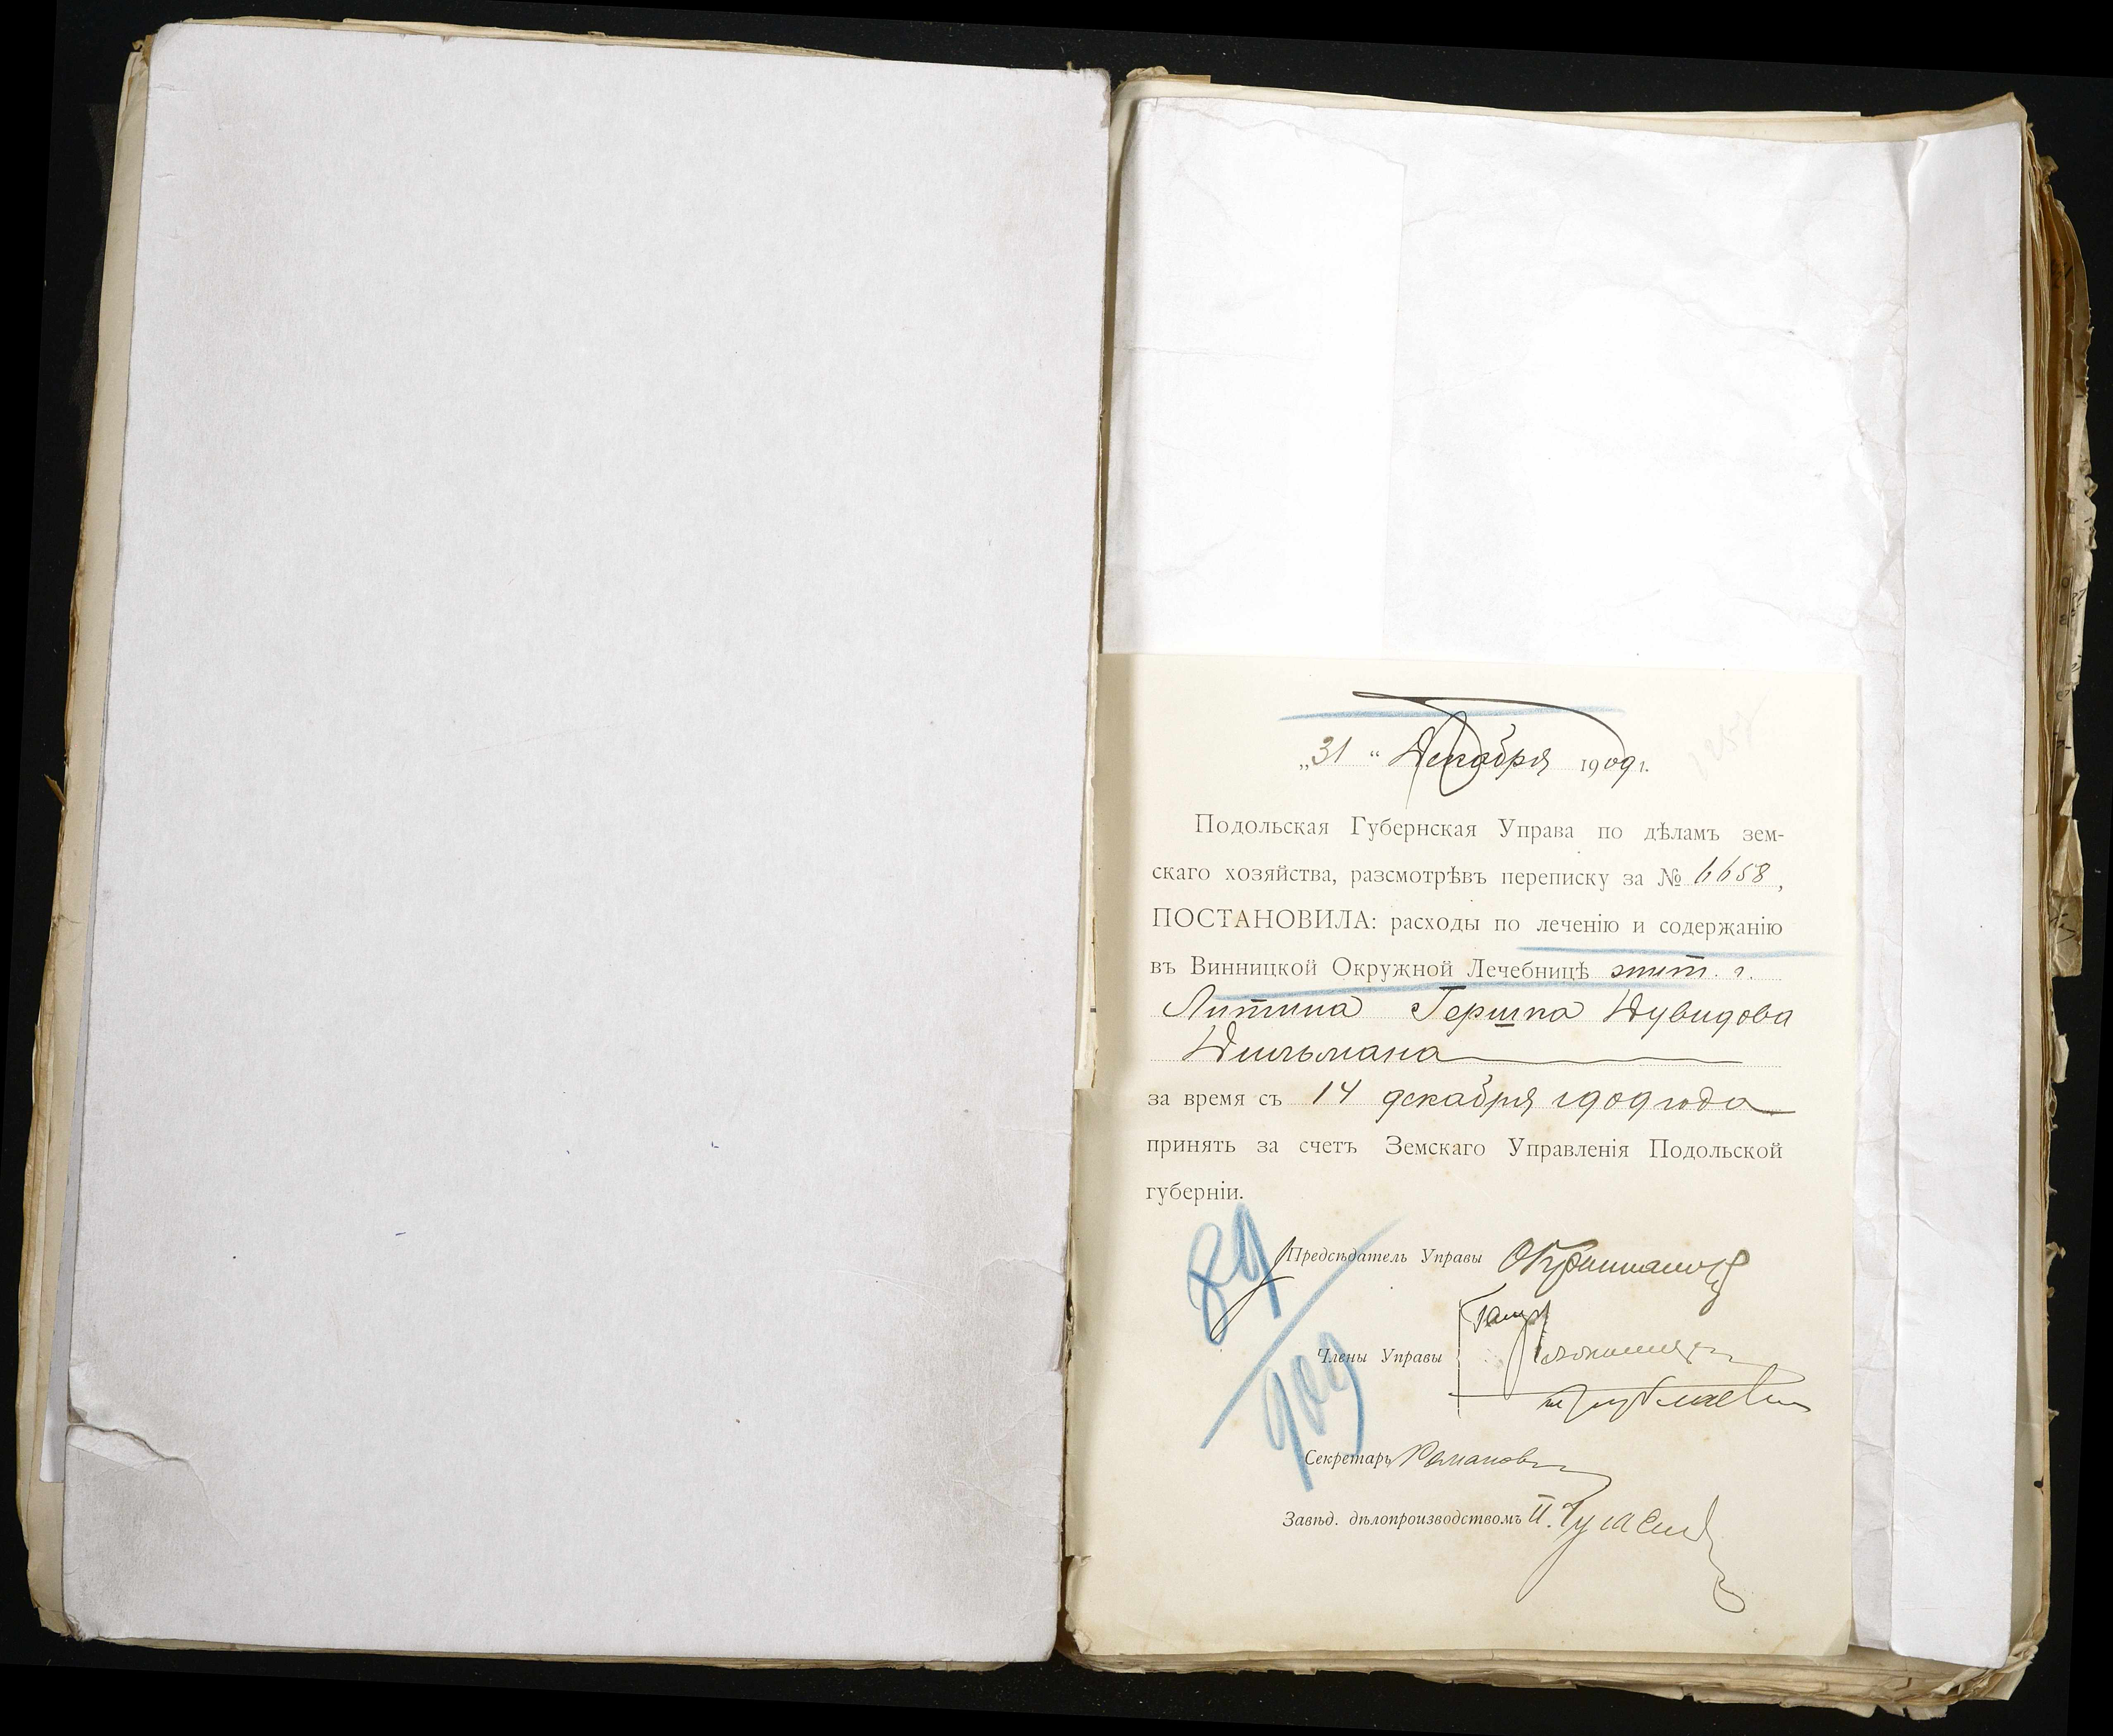 „31“ Декабря 1909 г.
Подольская Губернская Управа по дѣламъ зем-
скаго хозяйства, разсмотрѣвъ переписку за № 6658,
ПОСТАНОВИЛА: расходы по леченію и содержанію
въ Винницкой Окружной Лечебницѣ жит. г.
Литина Гершка Дувидова
Дильмана
за время съ 14 декабря 1909 года
принять за счетъ Земскаго Управленія Подольской
губерніи.
89
Предсѣдатель Управы
Члены Управы
909
Секретарь Романов
Завѣд. дѣлопроизводствомъ П.